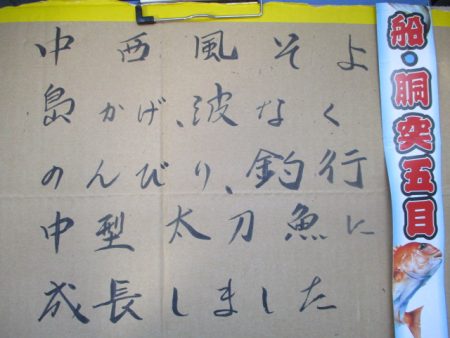 中西風そよ
島かげ、波なく
のんびり、釣行
中型太刀魚に
成長しました
船・胴突五目